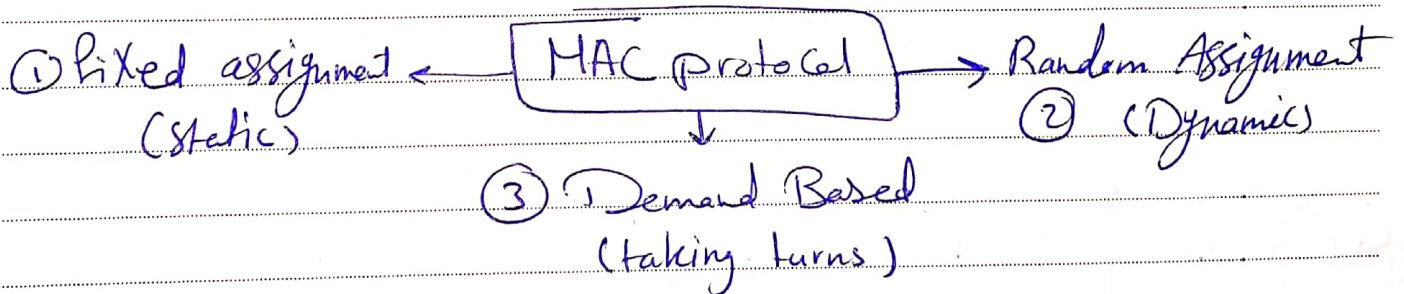 ① Fixed assignment
(Static)
MAC protocol
Random Assignment
② (Dynamic)
③ Demand Based
(taking turns)